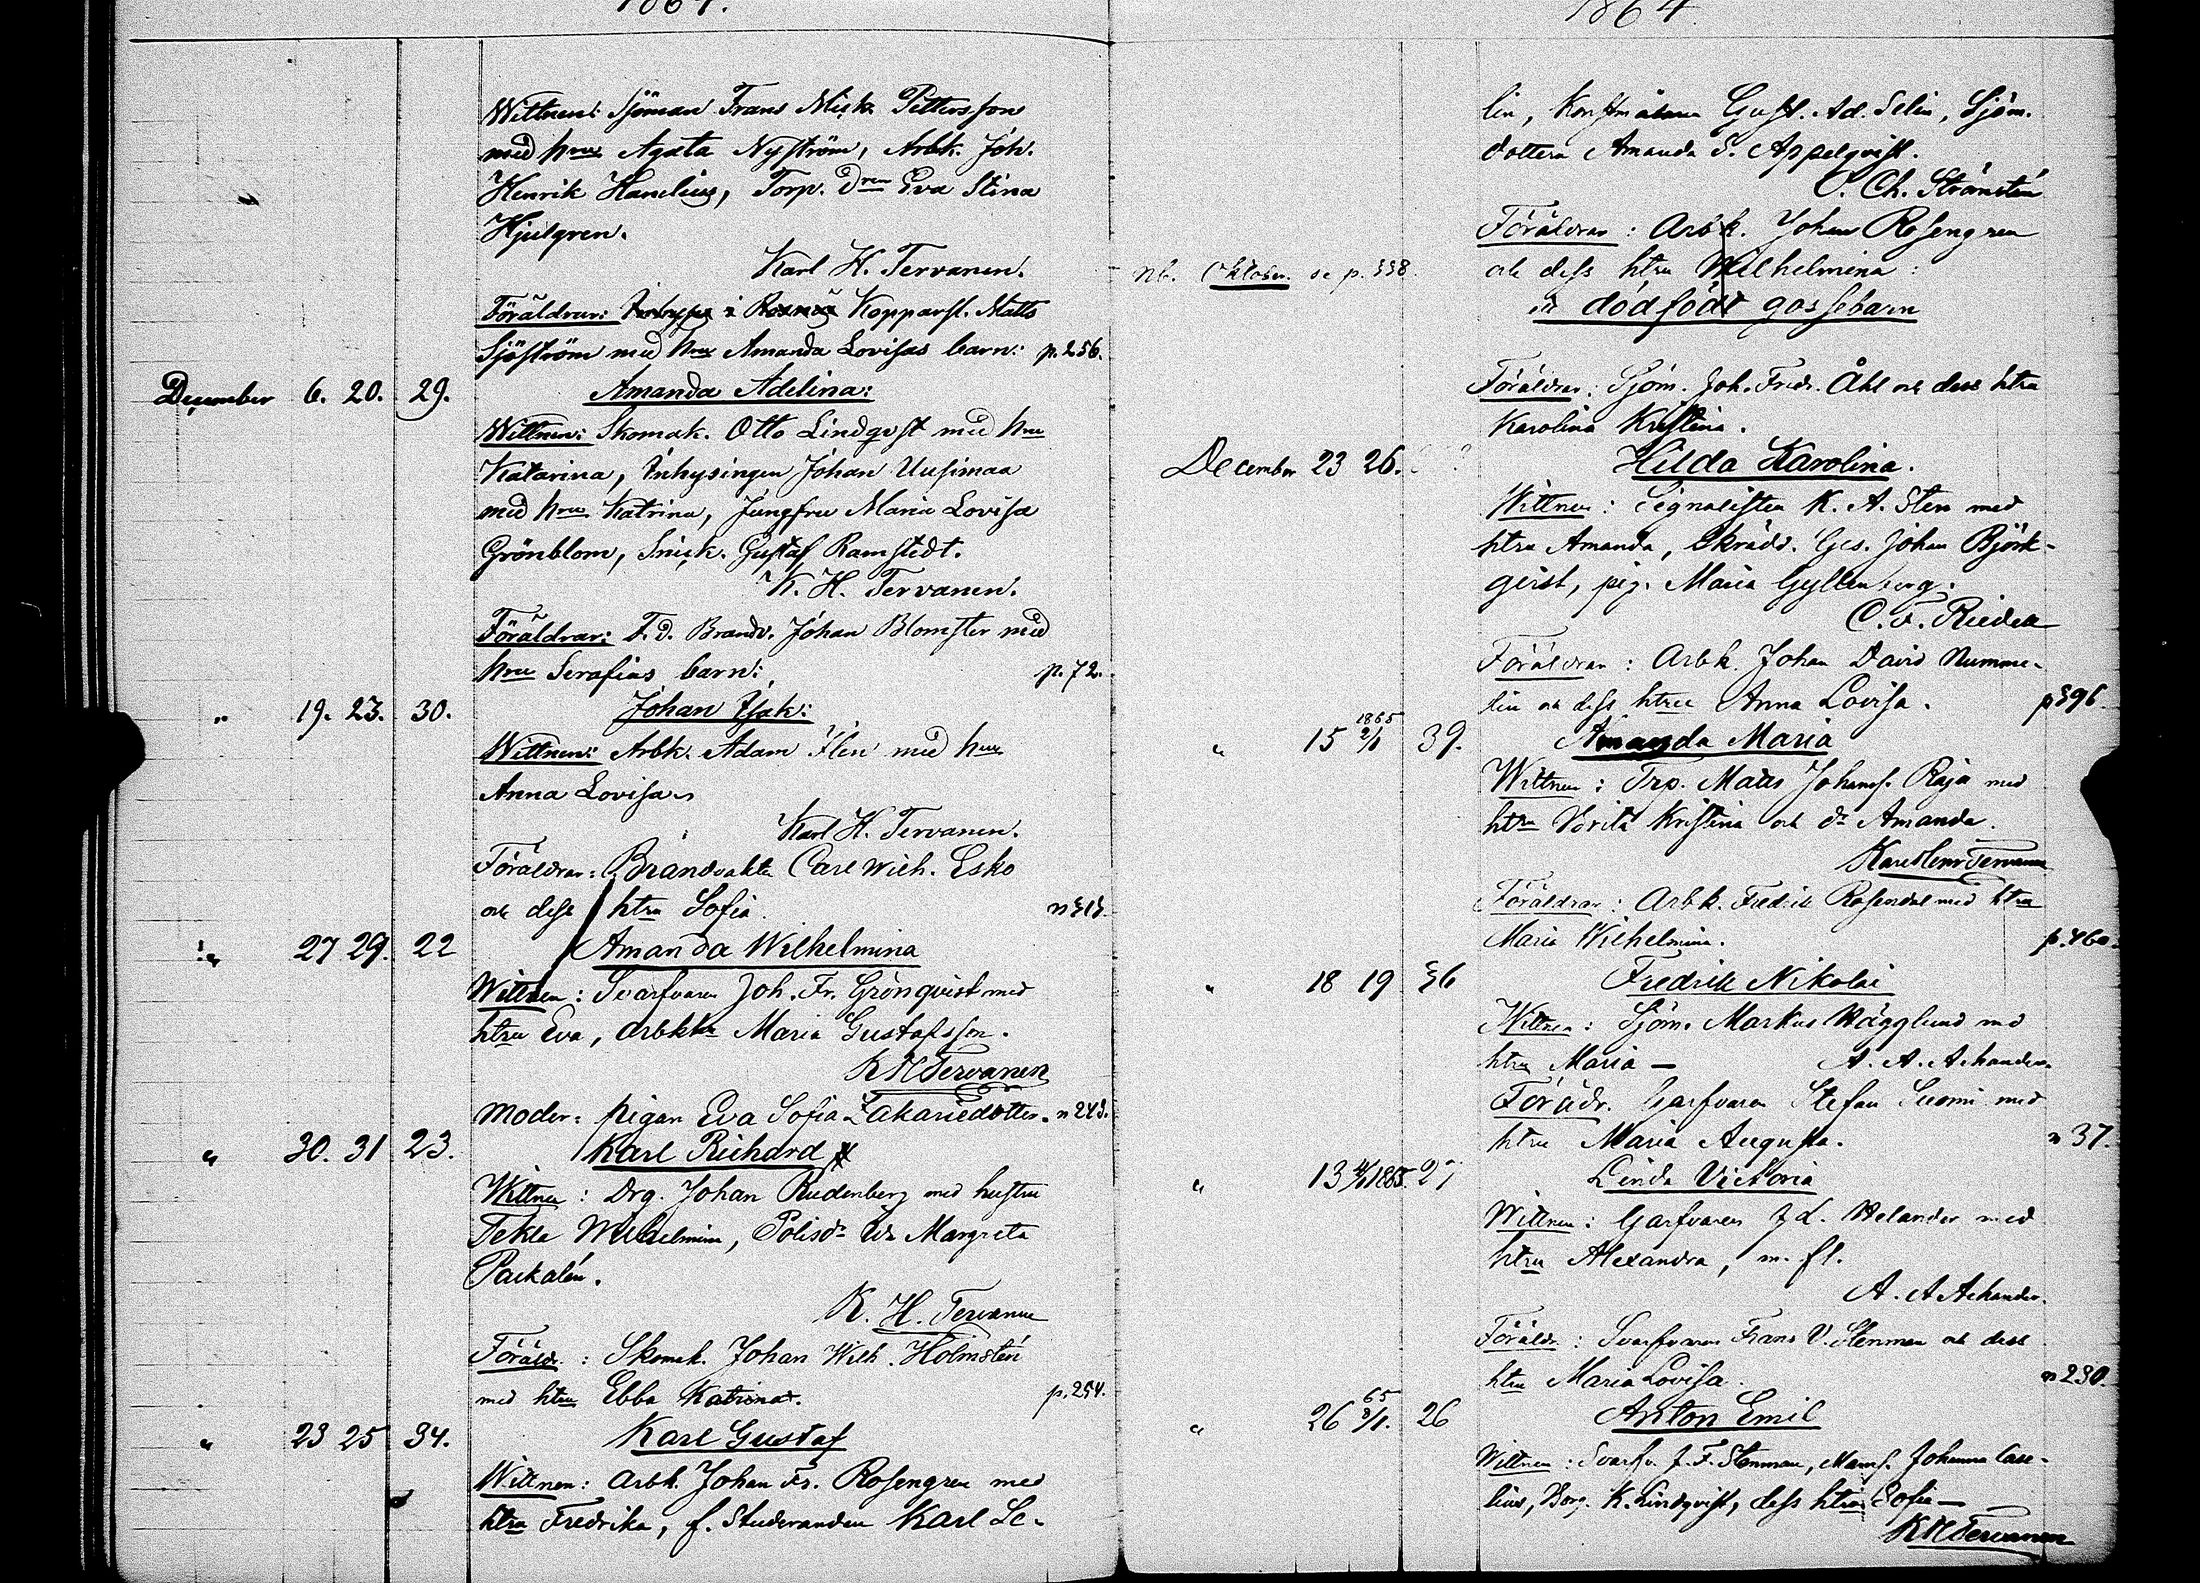 1864.
Wittnen: Sjöman Frans Mick. Pettersson
med hru Agata Nyström, Arbk. Joh.
Henrik Hanelius, Torp. Dren Eva Stina
Hjulgren.
Karl H. Tervanen.
Föräldrar: Kopparsl. Matts
Sjöström med hru Amanda Lovisas barn: p. 256.
December 6. 20. 29. Amanda Adelina:
Wittnen: Skomak. Otto Lindqvst med hru
Katarina, Inhysingen Johan Uusimaa
med hru Katrina, Jungfru Maria Lovisa
Grönblom, Snick. Gustaf Ramstedt.
K. H. Tervanen.
Föräldrar: F. d. Brandv. Johan Blomster med
hru Serafias barn: p. 72.
" 19. 23. 30. Johan Isak:
Wittnen: Arbk. Adam Flen med hru
Anna Lovisa
Karl H. Tervanen.
Föräldrar: Brandvakten Carl Wilh. Esko
och dess htru Sofia. p 313.
" 27 29. 22 Amanda Wilhelmina
Wittnen: Svarfvaren Joh. Fr. Grönqvist med
htru Eva, Arbkkn Maria Gustafsson.
K H Tervanen
Moder: pigan Eva Sofia Zakariedotter. p 243.
" 30. 31 23. Karl Richard
Wittnen: Drg. Johan Rudenberg med hustru
Tekla Wilhelmina, Polisdr Ida Margreta
Packalén.
K. H. Tervanen
Föräldr.: Skomak. Johan Wilh. Holmstén
med htru Ebba Katrina. p. 254.
" 23 25 34. Karl Gustaf
Wittnen: Arbk. Johan Fr. Rosengren med
htru Fredrika, f. Studeranden Karl Se-
1864
lin, Konstmålaren Gust. Ad. Selin, Sjöm.
dottern Amanda S. Appelqvist.
C. Ch. Stränstén
Föräldrar: Arbk. Johan Rosengren
och dess htru Wilhelmina:
Nb. Oktober. se p. 338.
dödfödt gossebarn
Föräldrar: Sjöm. Joh. Fredr. Åhl och dess htru
Karolina Kristina.
December 23 26. Hilda Karolina.
Wittnen: Signalisten K. A. Sten med
htru Amanda, Skrädd. Ges. Johan Björk-
qvist, pig. Maria Gyllenberg.
C. F. Riedell
Föräldrar: Arbk. Johan David Numme-
lin och dess htru Anna Lovisa. p 396.
" 15 1865 2/1 39. Amanda Maria
Wittnen: Trp. Matts Johanss. Raja med
htru Vorita Kristina och dr Amanda.
Karl Henr Tervanen
Föräldrar: Arbk. Fredrik Rosendal med htru
Maria Wilhelmina. p. 460.
" 18 19 36 Fredrik Nikolai
Wittnen: Sjöm. Markus Hägglund med
htru Maria — A. A. Achander.
Förädr. Garfvaren Stefan Suomi med
htru Maria Augusta. p 37.
" 13 4/1 1865 27 Linda Victoria
Wittnen: Garfvaren J L. Helander med
htru Alexandra, m. fl.
A. A Achander.
Föräldr: Svarfvaren Frans V. Stenman och dess
htru Maria Lovisa. p 230.
" 26 65 8/1. 26 Anton Emil
Wittnen: Svarfv. J. F. Stenman, Mams. Johanna Case-
lius, Borg. K. Lindqvist, dess htru Sofia —
K H Tervanen